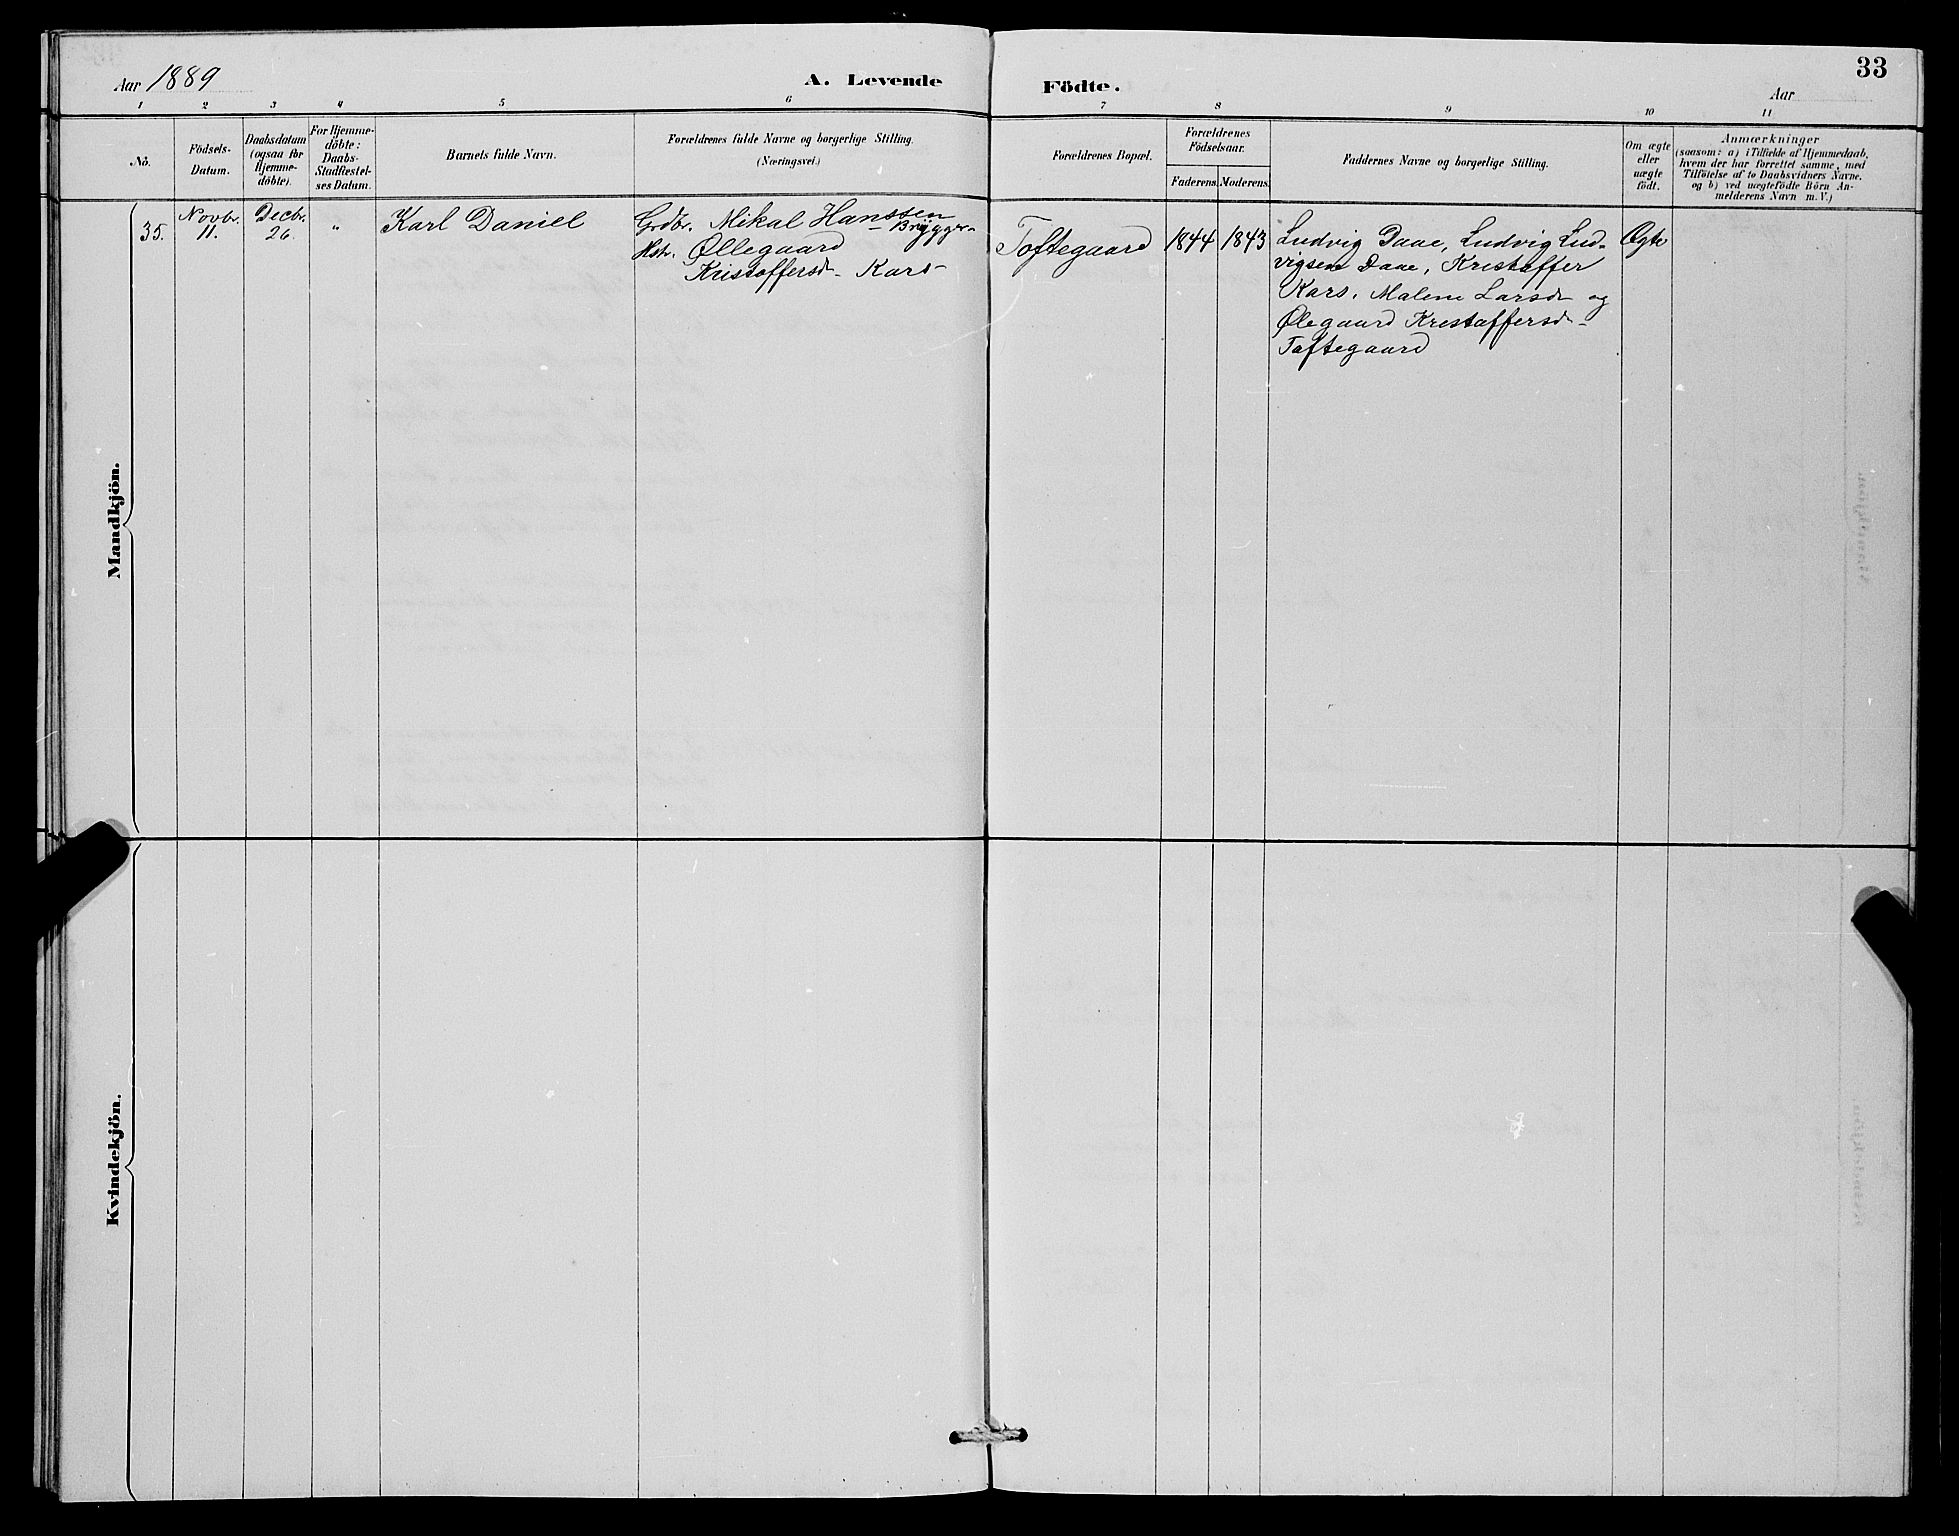 Aar 1889
A. Levende
Födte.
33
Aar
1
2
3
4
5
6
7
8
9
10
11
No.
Födsels-
Datum.
Daabsdatum
(ogsaa for
Hjemme-
döbte).
For Hjemme-
döbte:
Daabs-
Stadfæstel-
ses Datum.
Barnets fulde Navn.
Forældrenes fulde Navne og borgerlige Stilling.
(Næringsvei.)
Forældrenes Bopæl.
Forældrenes
Födselsaar.
Faderens.
Moderens.
Faddernes Navne og borgerlige Stilling.
Om ægte
eller
uægte
födt.
Anmærkninger
(saasom: a) i Tilfælde af Hjemmedaab,
hvem der har forrettet samme, med
Tilföielse af to Daabsvidners Navne.
og b) ved uægtefödte Börn An-
melderens Navn m.V.)
Mandkjön.
35.
Novbr.
11.
Decbr.
26.
"
Karl Daniel
Grdbr. Mikal Hanssen
- Brygger-
Hstr. Øllegaard
Kristoffersd- Kars-
Toftegaard
1844
1843
Ludvig Daae, Ludvig Lud-
vigsen Daae, Kristoffer
Kars, Malene Larsd- og
Ølegaard Kristoffersd-
Toftegaard
Ægte
Kvindekjön.